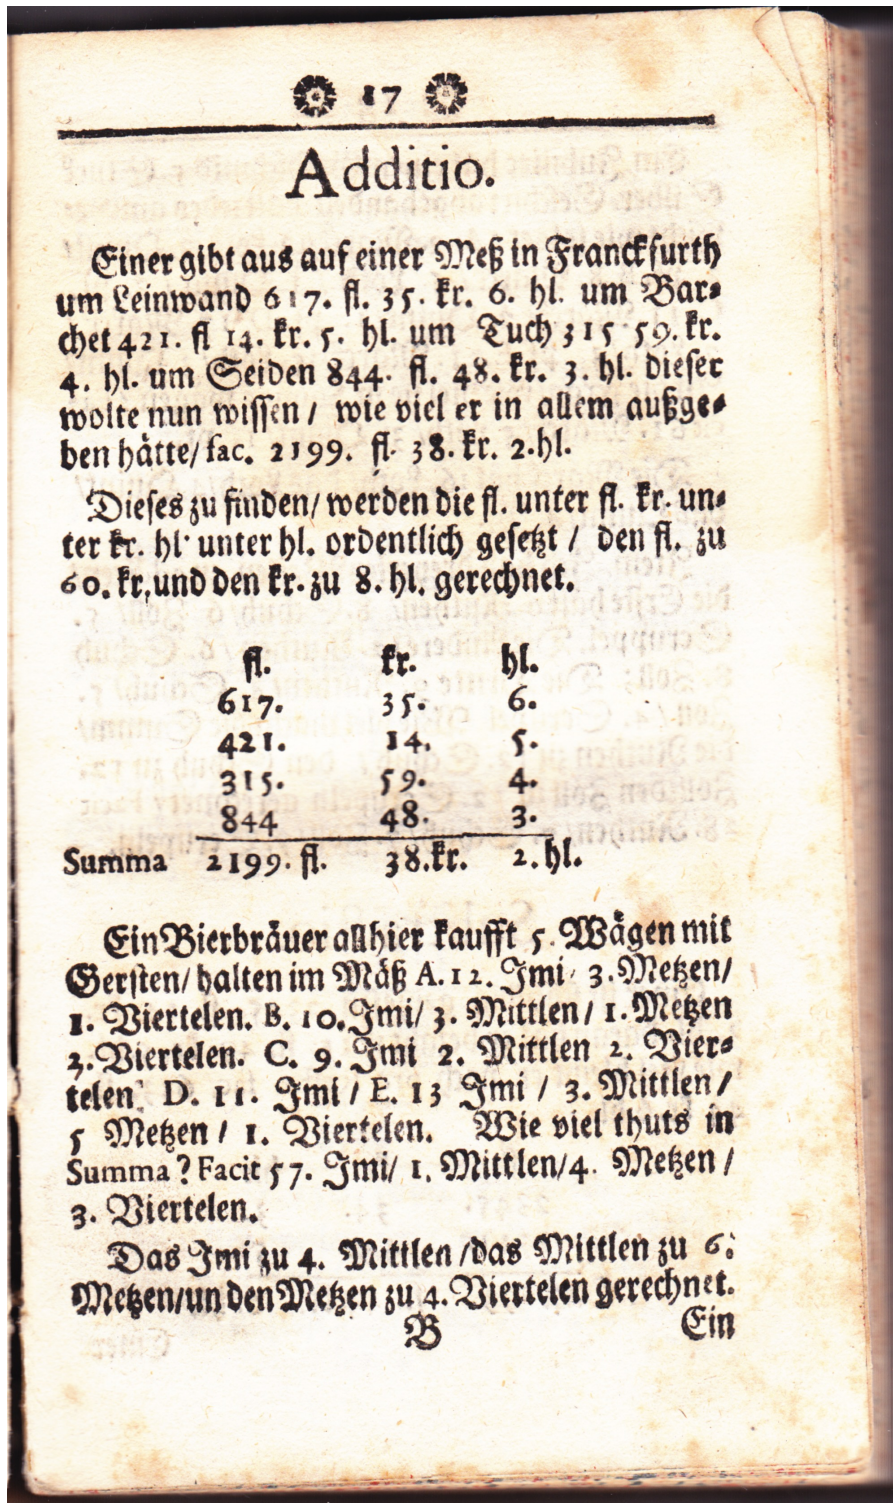 17
Additio.
Einer gibt aus auf einer Meß in Franckfurth
um Leinwand 617. fl. 35. kr. 6. hl. um Bar-
chet 421. fl 14. kr. 5. hl. um Tuch 315 59. kr.
4. hl. um Seiden 844. fl. 48. kr. 3. hl. dieser
wolte nun wissen / wie viel er in allem außge-
ben hätte/ fac. 2199. fl. 38. kr. 2.hl.
Dieses zu finden/ werden die fl. unter fl. kr. un-
ter kr. hl. unter hl. ordentlich gesetzt / den fl. zu
60. kr, und den kr. zu 8. hl. gerechnet.
fl. kr. hl.
617. 35. 6.
421. 14. 5.
315. 59. 4.
844 48. 3.
Summa 2199. fl. 38.kr. 2.hl.
Ein Bierbräuer allhier kaufft 5. Wägen mit
Gersten/ halten im Mäß A. 12. Imi 3. Metzen/
1. Viertelen. B. 10. Imi/ 3. Mittlen/ 1. Metzen
3. Viertelen. C. 9. Imi 2. Mittlen 2. Vier-
telen D. 11. Imi / E. 13 Imi / 3. Mittlen/
5 Metzen / 1. Viertelen. Wie viel thuts in
Summa? Facit 57. Imi/ 1. Mittlen/4. Metzen /
3. Viertelen.
Das Imi zu 4. Mittlen /das Mittlen zu 6.
Metzen/un den Metzen zu 4. Viertelen gerechnet.
B Ein